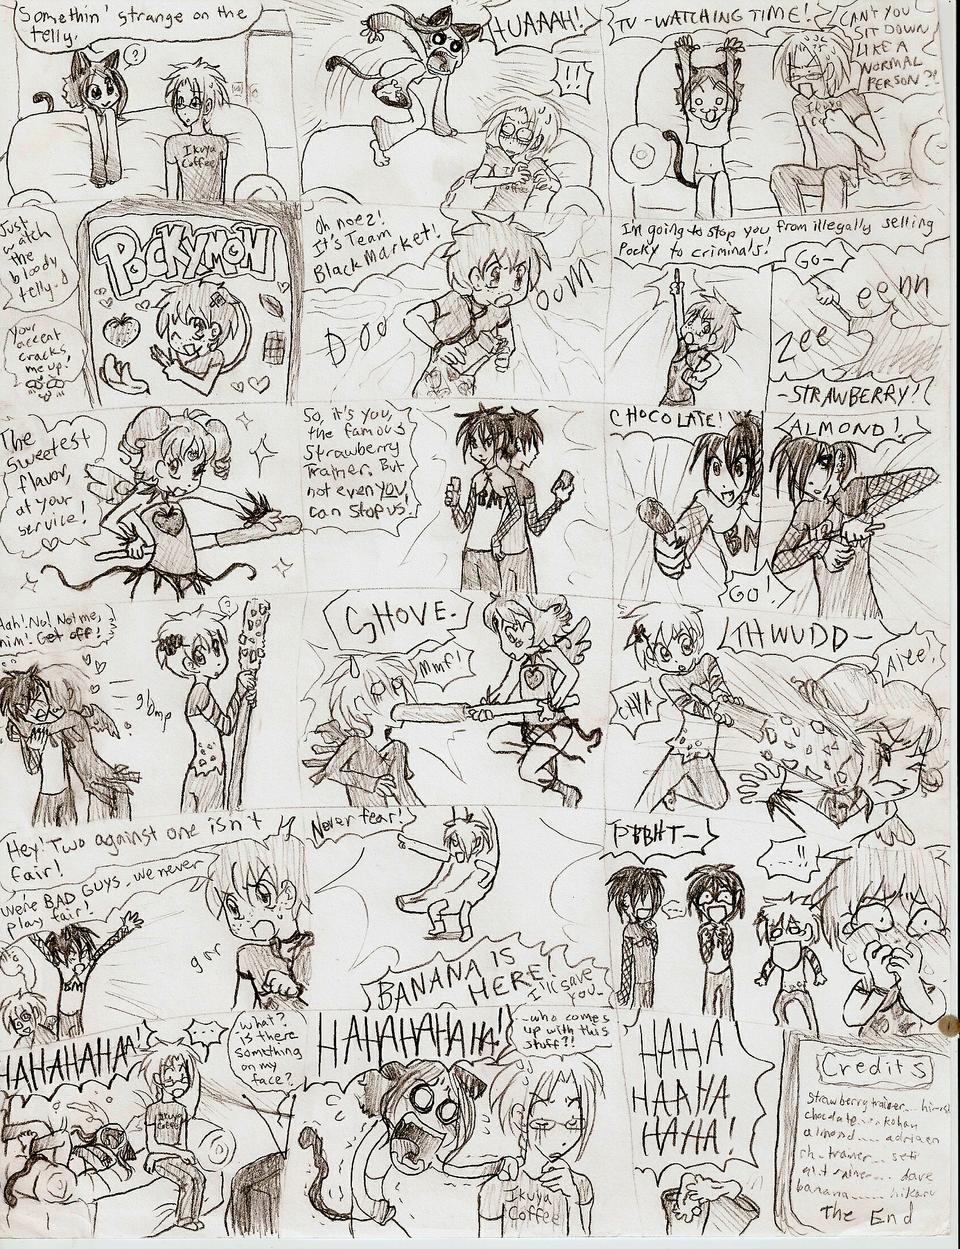 Somethin' strange on the
telly.
?
Ikuya
Coffee
HUAAAH!
!!!
Coffee
TV-WATCHING TIME!
CAN'T YOU
SIT DOWN
LIKE A
NORMAL
PERSON?!
Ikuya
Just
watch
the
bloody
telly.
Your
accent
cracks
me up.
POCKYMON
Oh noez!
It's Team
BlackMarket!
Doo
oom
I'm going to stop you from illegally selling
Pocky to criminals!
GO-
zee
eenn
-STRAWBERRY!
The
sweetest
flavor,
at your
service!
So, it's you,
the famous
Strawberry
Trainer. But
not even you
can stop us!
BM
CHOCOLATE!
GO!
ALMOND!
Hah! No! Not me,
him! Get off!
glomp
?
SHOVE-
Mmf!
THWUDD-
CHYA
Aiee!
Hey! Two against one isn't
fair!
We're BAD GUYS. We never
play fair!
BM
grr
Never fear!
BANANA IS
HERE!
I'll save
you-
PBBHT-
...!!
HAHAHAHAA!
...
What?
is there
something
on my
face?
Ikuya
Coffee
HAHAHAHAHA!
-who comes
up with this
stuff?!
Ikuya
Coffee
HAHA
HAAHA
HAHA!
Credits
strawberry trainer...
chocolate... kohan
almond.... adriaen
ch. trainer... seti
dave
banana...... hikaru
The End